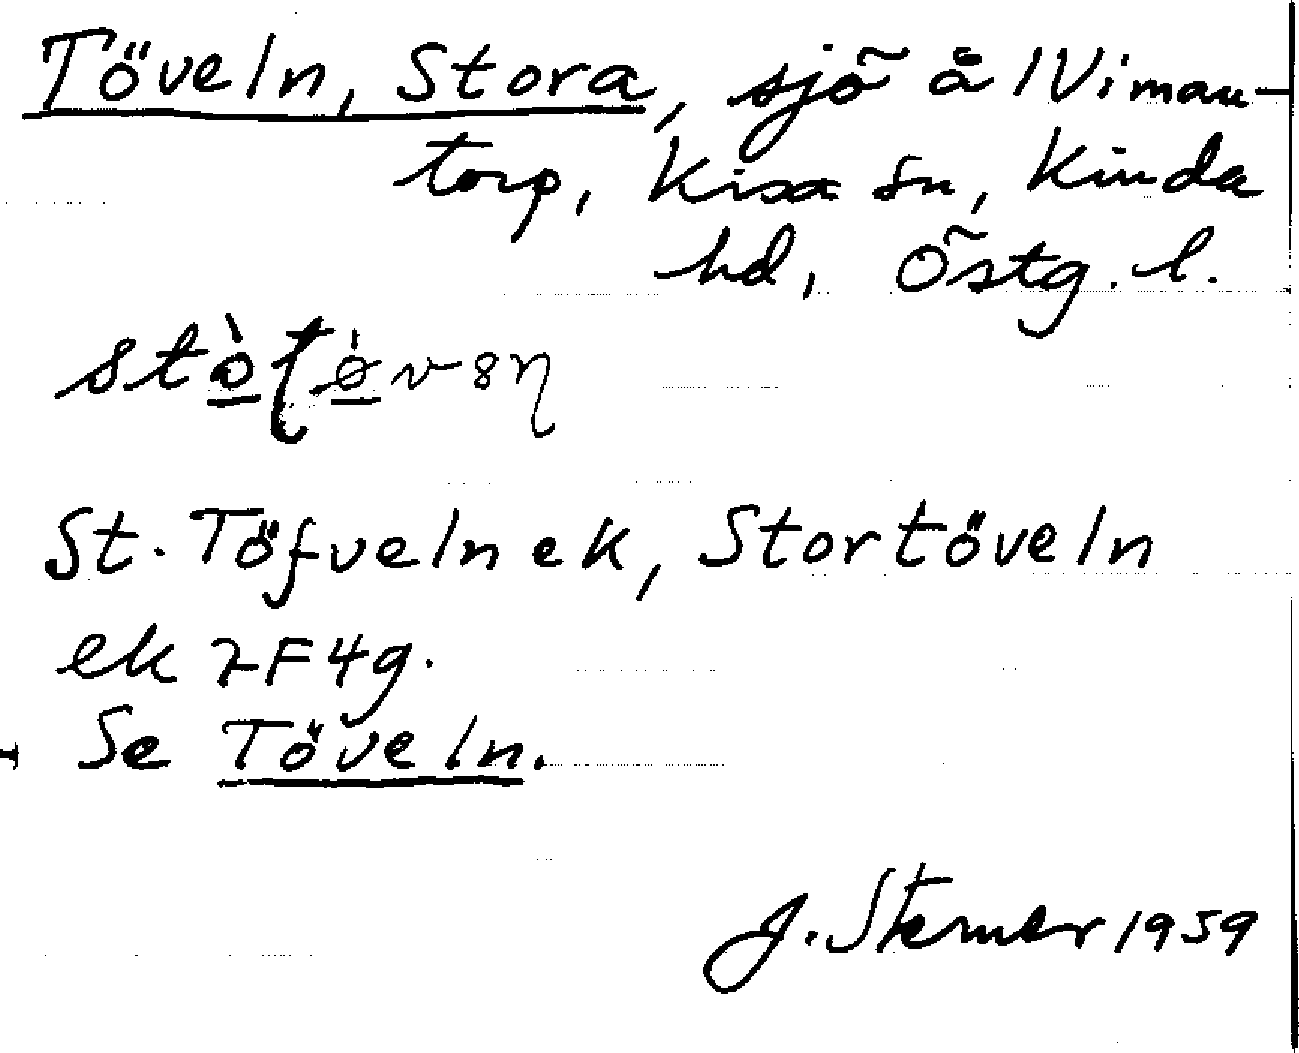 Töveln, Stora, sjö å 1 Viman-
torp, Kisa sn, Kinda
hd, Östg. l.
St. Töfveln ek, Stortöveln
ek 2F4g.
Se Töveln.
J. Sterner 1959